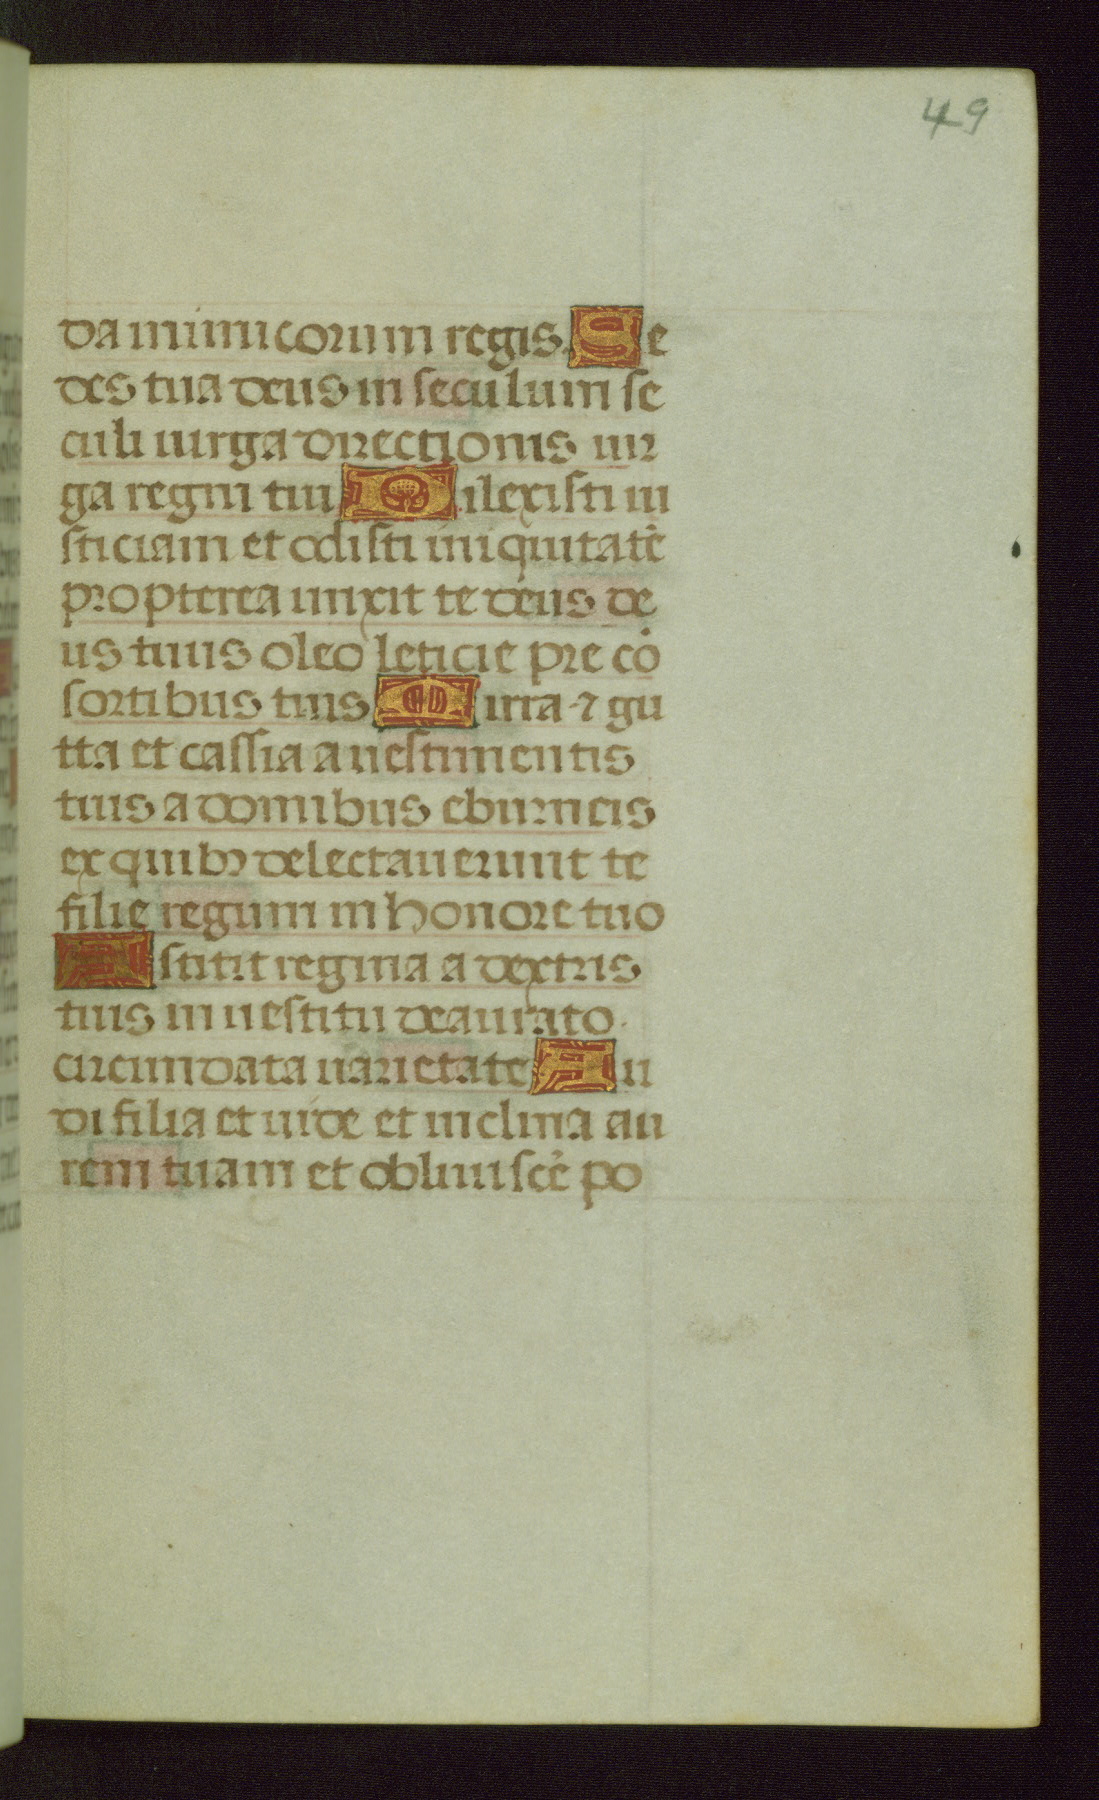 49
da inimicorum regis. Se
des tua deus in seculum se
culi uirga directionis uir
ga regni tui Dilexisti iu
sticiam et odisti iniquitatē
propterea unxit te deus de
us tuus oleo leticie pre cō
sortibus tuis Mirra ⁊ gu
tta et cassia a uestimentis
tuis a domibus eburneis
ex quibꝫ delectauerunt te
filie regum in honore tuo
Astitit regina a dextris
tuis in uestitu deaurato.
circumdata uarietate Au
di filia et uide et inclina au
rem tuam et obliuiscē po